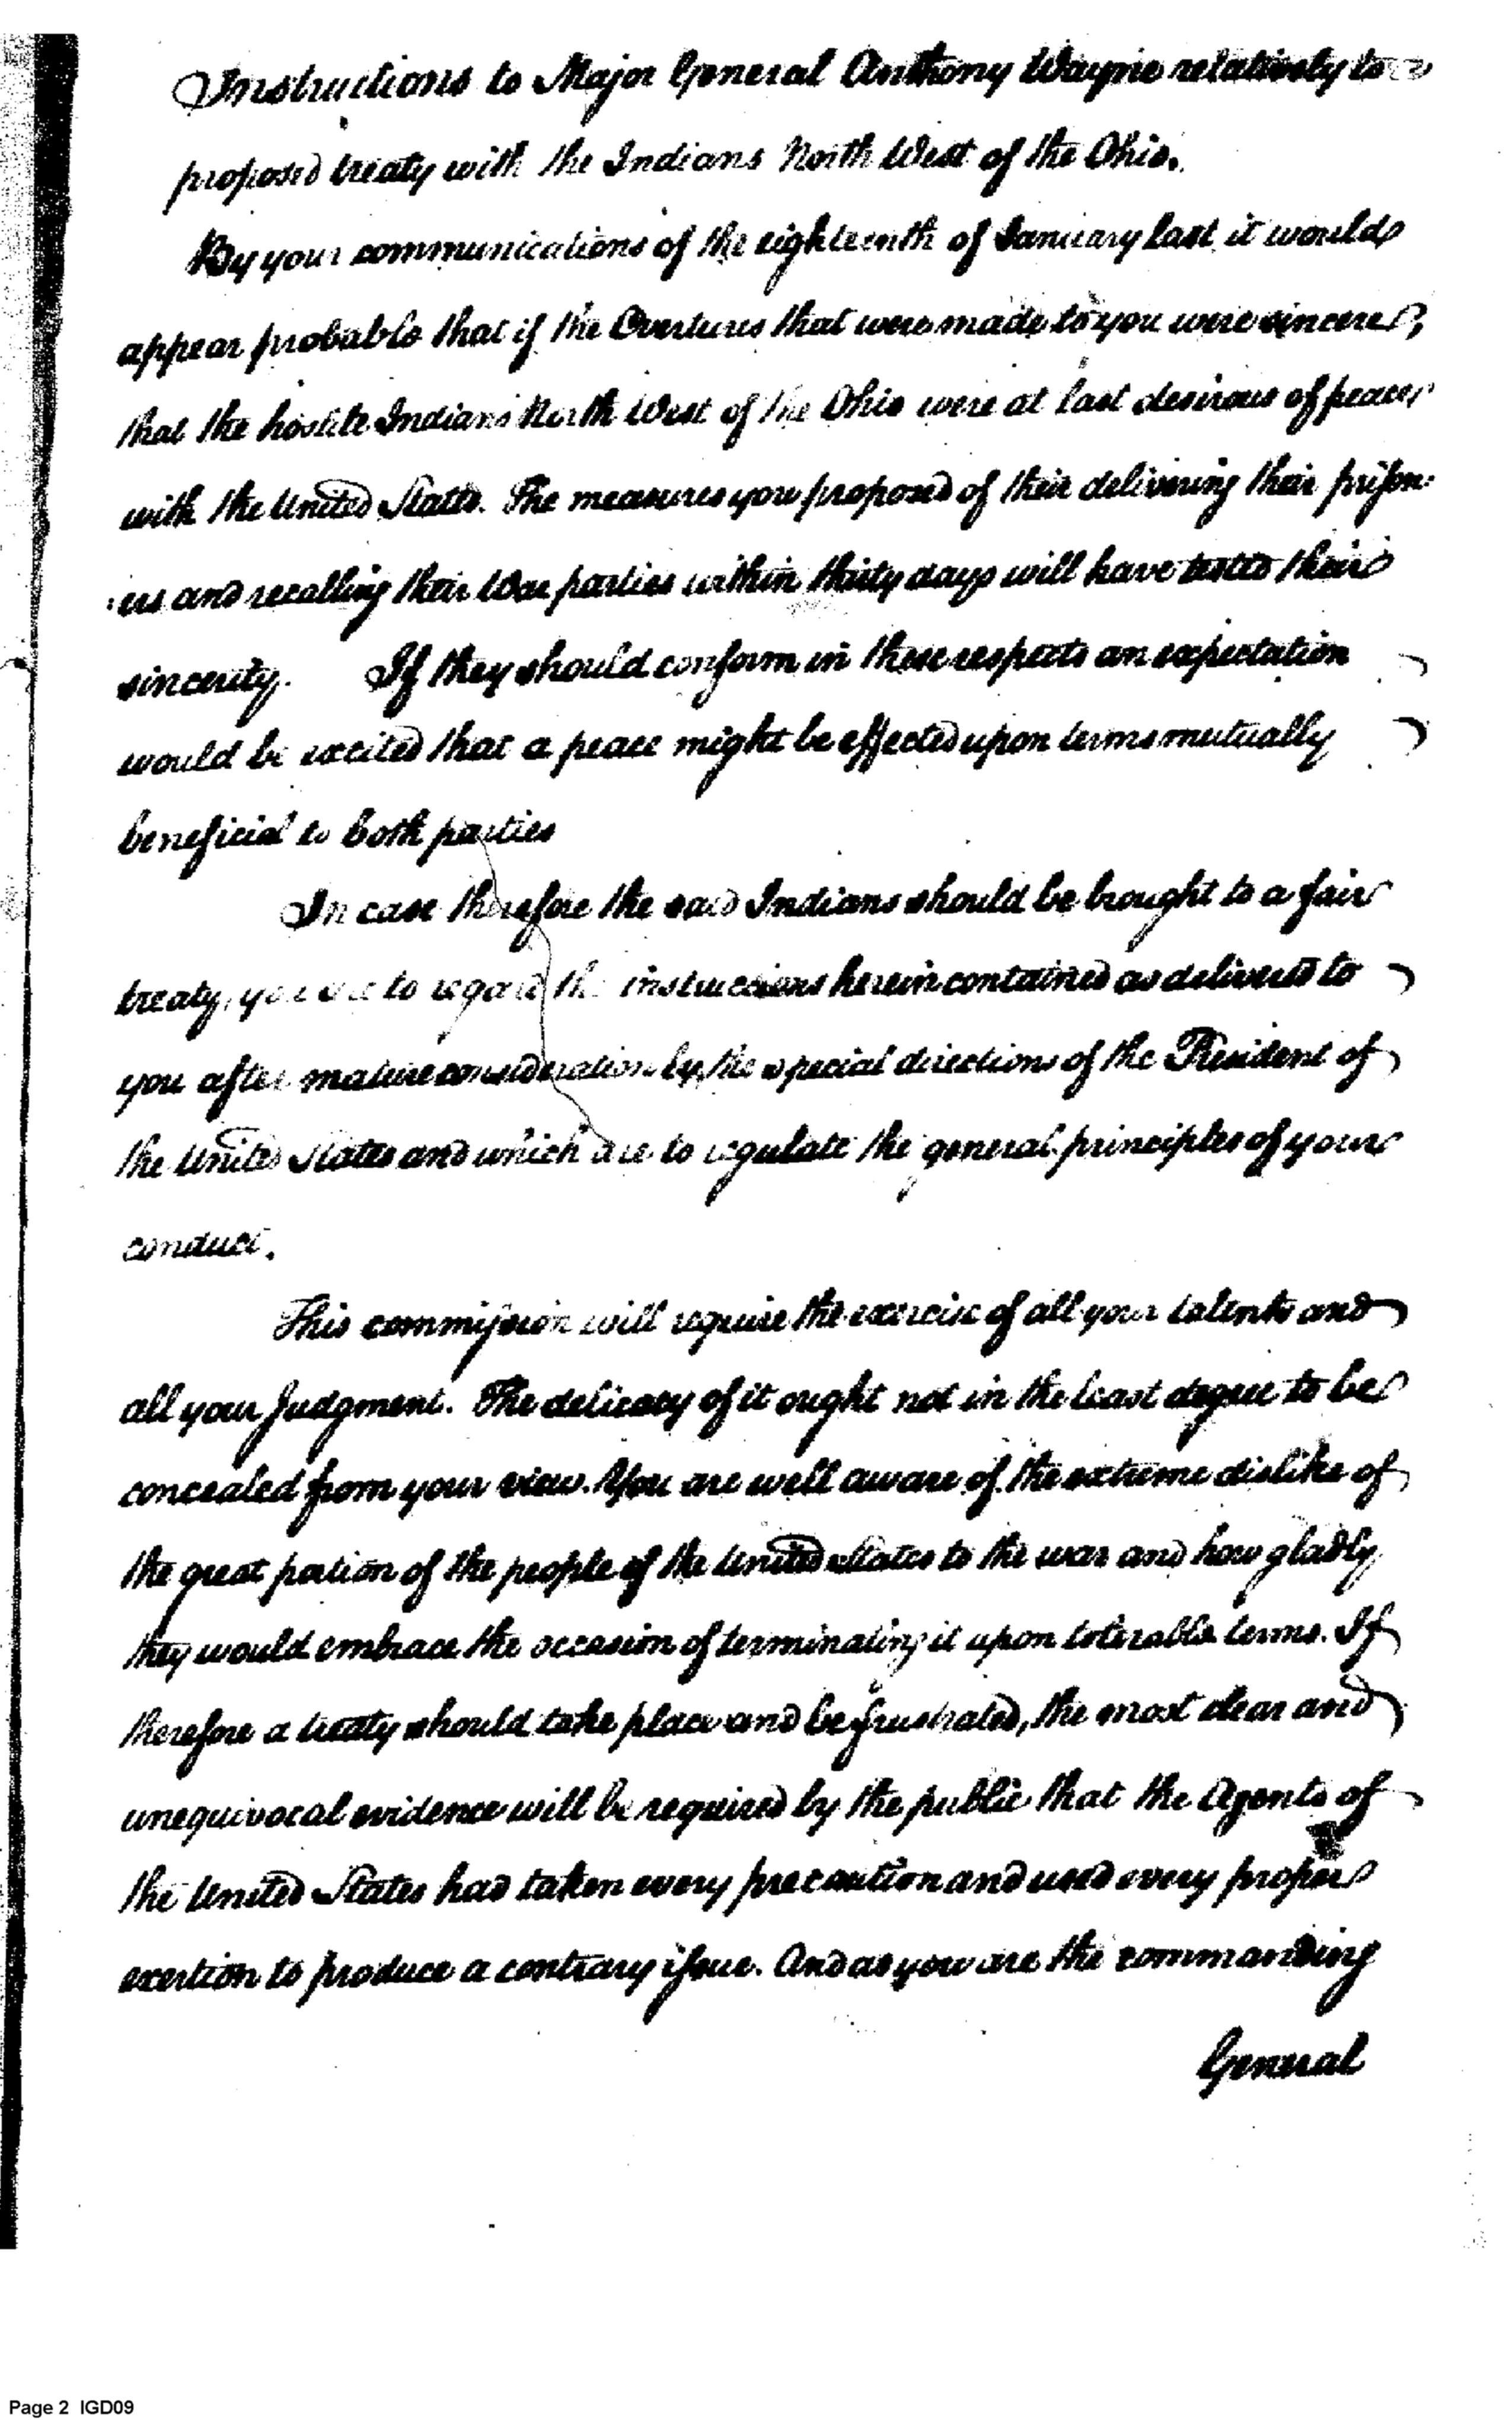 Instructions to Major General Anthony Wayne relatively to a
proposed treaty with the Indians North West of the Ohio.
By your communications of the eighteenth of January last it would
appear probable that if the Overtures that were made to you were sincere,
that the hostile Indians North West of the Ohio were at last desirous of peace
with the United States. The measures you proposed of their delivering their prison:
:ers and recalling their War parties within thirty days will have tested their
sincerity. If they should conform in these respects an expectation
would be excited that a peace might be effected upon terms mutually
beneficial to both parties
In case therefore the said Indians should be brought to a fair
treaty, you are to regard the instructions herein contained as delivered to
you after mature consideration by the special directions of the President of
the United States and which are to regulate the general principles of your
conduct.
This commission will require the exercise of all your talents and
all your Judgment. The delicacy of it ought not in the least degree to be
concealed from your view. You are well aware of the extreme dislike of
the great portion of the people of the United States to the war and how gladly
they would embrace the occasion of terminating it upon tolerable terms. If
therefore a treaty should take place and be frustrated, the most clear and
unequivocal evidence will be required by the public that the Agents of
the United States had taken every precaution and used every proper
exertion to produce a contrary issue. And as you are the commanding
General
Page 2 IGD09